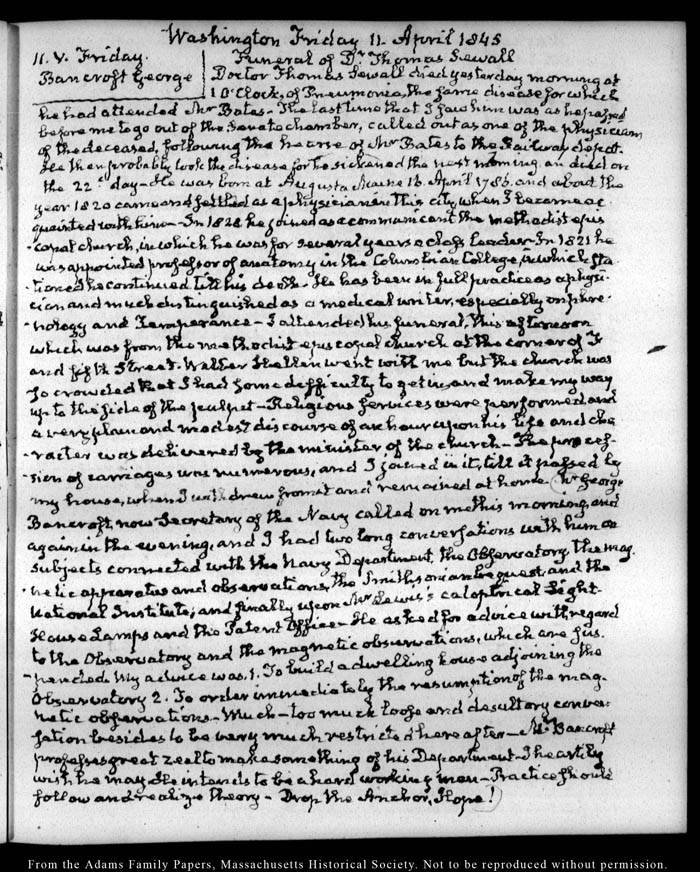 Washington Friday 11. April 1845
11. V. Friday.
Bancroft George
Funeral of Dr Thomas Sewall
Doctor Thomas Sewall died yesterday morning at
1 O'Clock, of Pneumonia, the same disease for which
he had attended Mr Bates. The last time that I saw him was as he passed
before me to go out of the Senate chamber, called out as one of the physicians
of the deceased, following the hearse of Mr Bates to the Railway depot.
He then probably took the disease for he sickened the next morning, an died on
the 22d day - He was born at Augusta Maine 16. April 1786. and about the
year 1820 came and settled as a physician in this city, when I became ac-
quainted with him - In 1828 he joined as a communicant the methodist epis
-copal church, in which he was for several years a class leader - In 1821 he
was appointed professor of anatomy in the Columbian College, in which sta-
-tion he continued till his death - He has been in full practice as a physi-
cian and much distinguished as a medical writer, especially on phre-
-nology and Temperance - I attended his funeral, this afternoon
which was from the methodist episcopal church at the corner of F
and fifth Street. Walter Hellen went with me but the church was
so crowded that I had some difficulty to get in and make my way
up to the side of the pulpit - Religious services were performed and
a very plain and modest discourse of an hour upon his life and cha-
-racter was delivered by the minister of the church - The proces-
-sion of carriages was numerous, and I joined in it, till it passed by
my house, when I withdrew from it and remained at home. Mr George
Bancroft, now Secretary of the Navy called on me this morning, and
again in the evening, and I had two long conversations with him on
subjects connected with the Navy Department, the Observatory, the mag-
-netic apparatus and observations, the Smithsonian bequest, and the
National Institute, and finally upon Mr Lewis's catoptrical Light-
House Lamps and the Patent Office - He asked for advice with regard
to the Observatory and the magnetic observations, which are sus-
-pended. My advice was, 1. To build a dwelling house adjoining the
Observatory 2. To order immediately the resumption of the mag-
netic observations - Much - too much loose and desultory conver-
sation besides to be very much restricted hereafter - Mr Bancroft
professes great zeal to make something of his Department - I heartily
wish he may. He intends to be a hard working man - Practice should
follow and realize theory - Drop the Anchor, Hope!
From the Adams Family Papers, Massachusetts Historical Society. Not to be reproduced without permission.